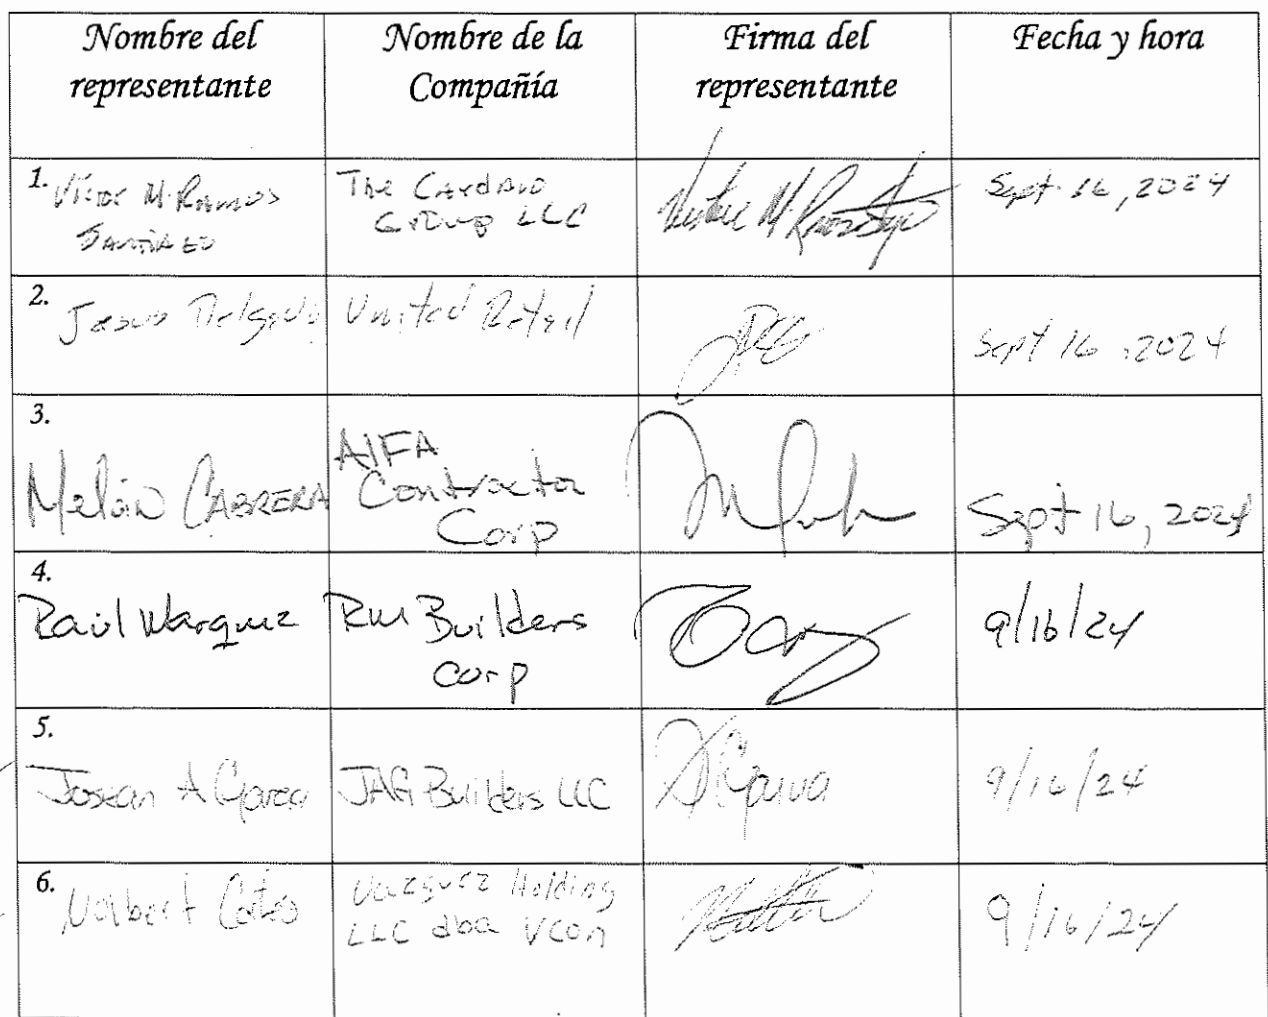 Nombre del representante
Nombre de la Compañía
Firma del representante
Fecha y hora
1. Victor M. Ramos
Santiago
The Cardona
Group LLC
Sept. 16, 2024
2. Jesus Delgado
United Retail
Sept 16, 2024
3.
Melvin CABRERA
AIFA
Contractor
Corp
Sept 16, 2024
4.
Raúl Marquez
RM Builders
Corp
9/16/24
5.
Josean A Garcia
JAG Builders LLC
9/16/24
6. Norbert Cortes
Vazquez Holding
LLC dba VCon
9/16/24